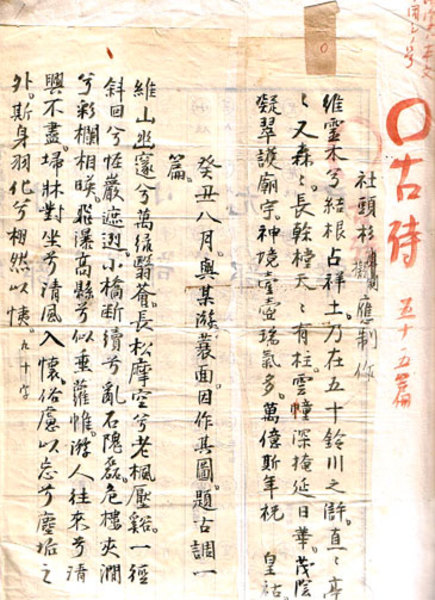 古詩 五十五篇
社頭杉 應制作
維靈木兮結根占祥土。乃在五十鈴川之滸。直〻亭
〻又森〻。長幹樘天〻有柱。雲幢深掩延日華。茂陰
凝翠護廟宇。神境壹壺瑞氣多。萬億斯年祝 皇祜。
癸丑八月。與某游蓑面因作其圖題古調一
篇。
維山幽邃兮萬緑翳薈。長松摩空兮老楓壓谿。一徑
斜回兮恠巖遮。小橋断續兮亂石隗磊。危樓夾澗
兮彩欄相暎。飛瀑高縣兮似垂蘿帷。游人往來兮清
興不盡。掃牀對坐兮清風入懷。俗慮以忘兮塵垢之
外。斯身羽化兮栩然以怢。九十字